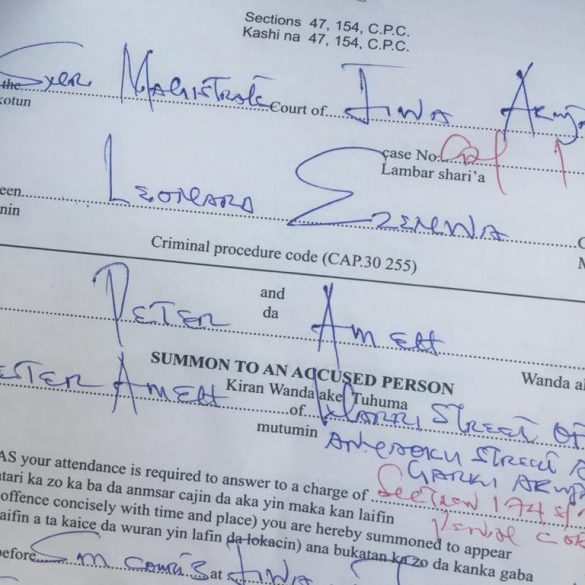 Sections 47, 154, C.P.C.
Kashi na 47, 154, C.P.C.
the Magistrate Court of Jiwa Abuja
kotun
case No.
Lambar shari'a
een Leonard Ezenwa
nin
Criminal procedure code (CAP.30 255)
and
da
Peter Ameh
SUMMON TO AN ACCUSED PERSON Wanda ak
Kiran Wanda ake Tuhuma
Ameh of Warri Street
mutumin Street
Garki Abuja
AS your attendance is required to answer to a charge of Section 174
atari ka zo ka ba da anmsar cajin da aka yin maka kan laifin Penal
offence concisely with time and place) you are hereby summoned to appear
aifin a ta kaice da wuran yin lafin da lokacin) ana bukatan ka zo da kanka gaba
before at Jiwa